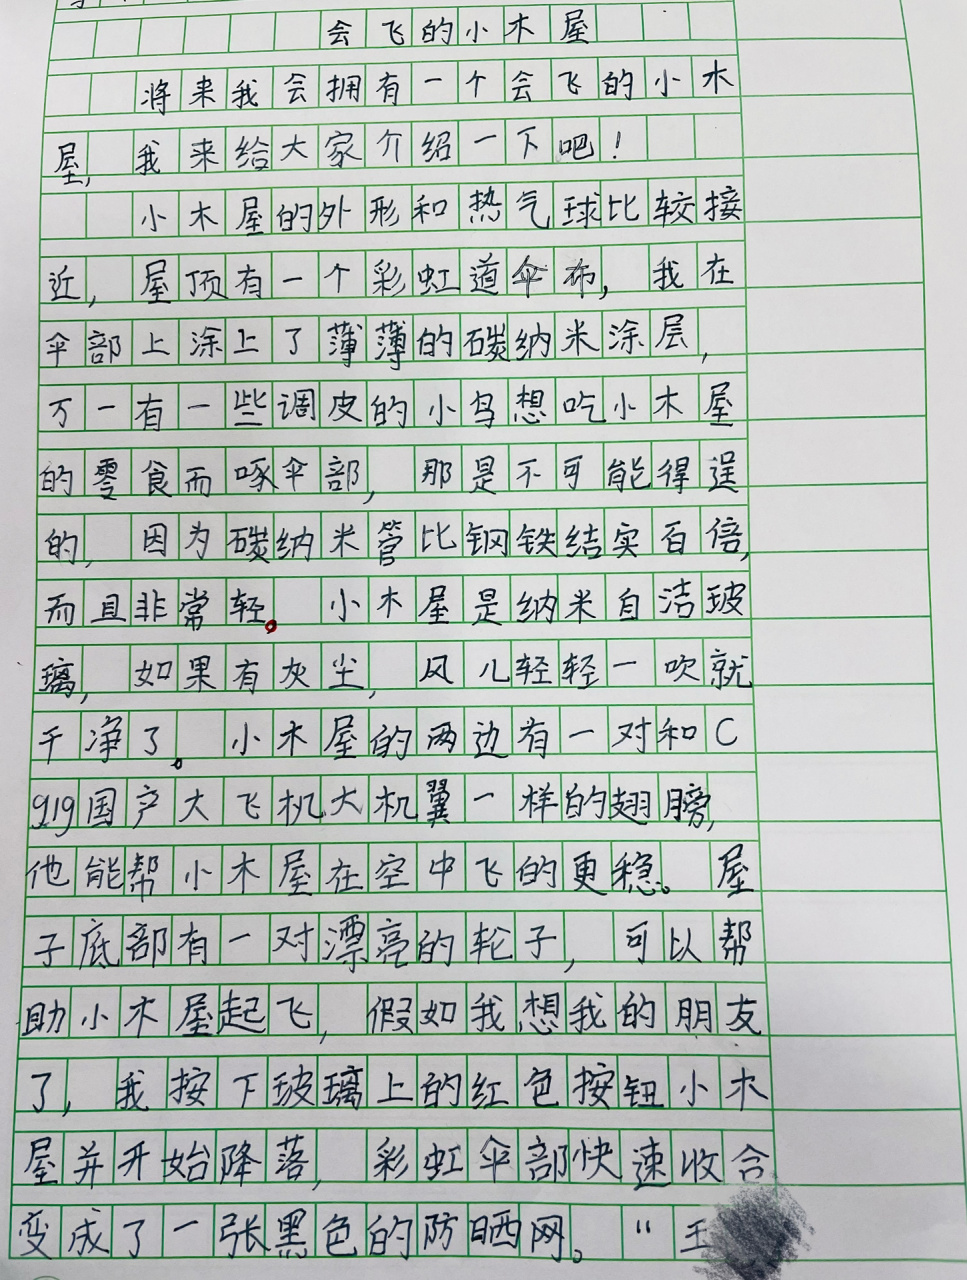 会飞的小木屋
将来我会拥有一个会飞的小木
屋,我来给大家介绍一下吧!
小木屋的外形和热气球比较接
近,屋顶有一个彩虹道伞布,我在
伞部上涂上了薄薄的碳纳米涂层,
万一有一些调皮的小鸟想吃小木屋
的零食而啄伞部,那是不可能得逞
的,因为碳纳米管比钢铁结实百倍,
而且非常轻。小木屋是纳米自洁玻
璃,如果有灰尘,风儿轻轻一吹就
干净了。小木屋的两边有一对和C
919国产大飞机大机翼一样的翅膀,
他能帮小木屋在空中飞的更稳。屋
子底部有一对漂亮的轮子,可以帮
助小木屋起飞,假如我想我的朋友
了,我按下玻璃上的红色按钮小木
屋并开始降落,彩虹伞部快速收合
变成了一张黑色的防晒网。“王